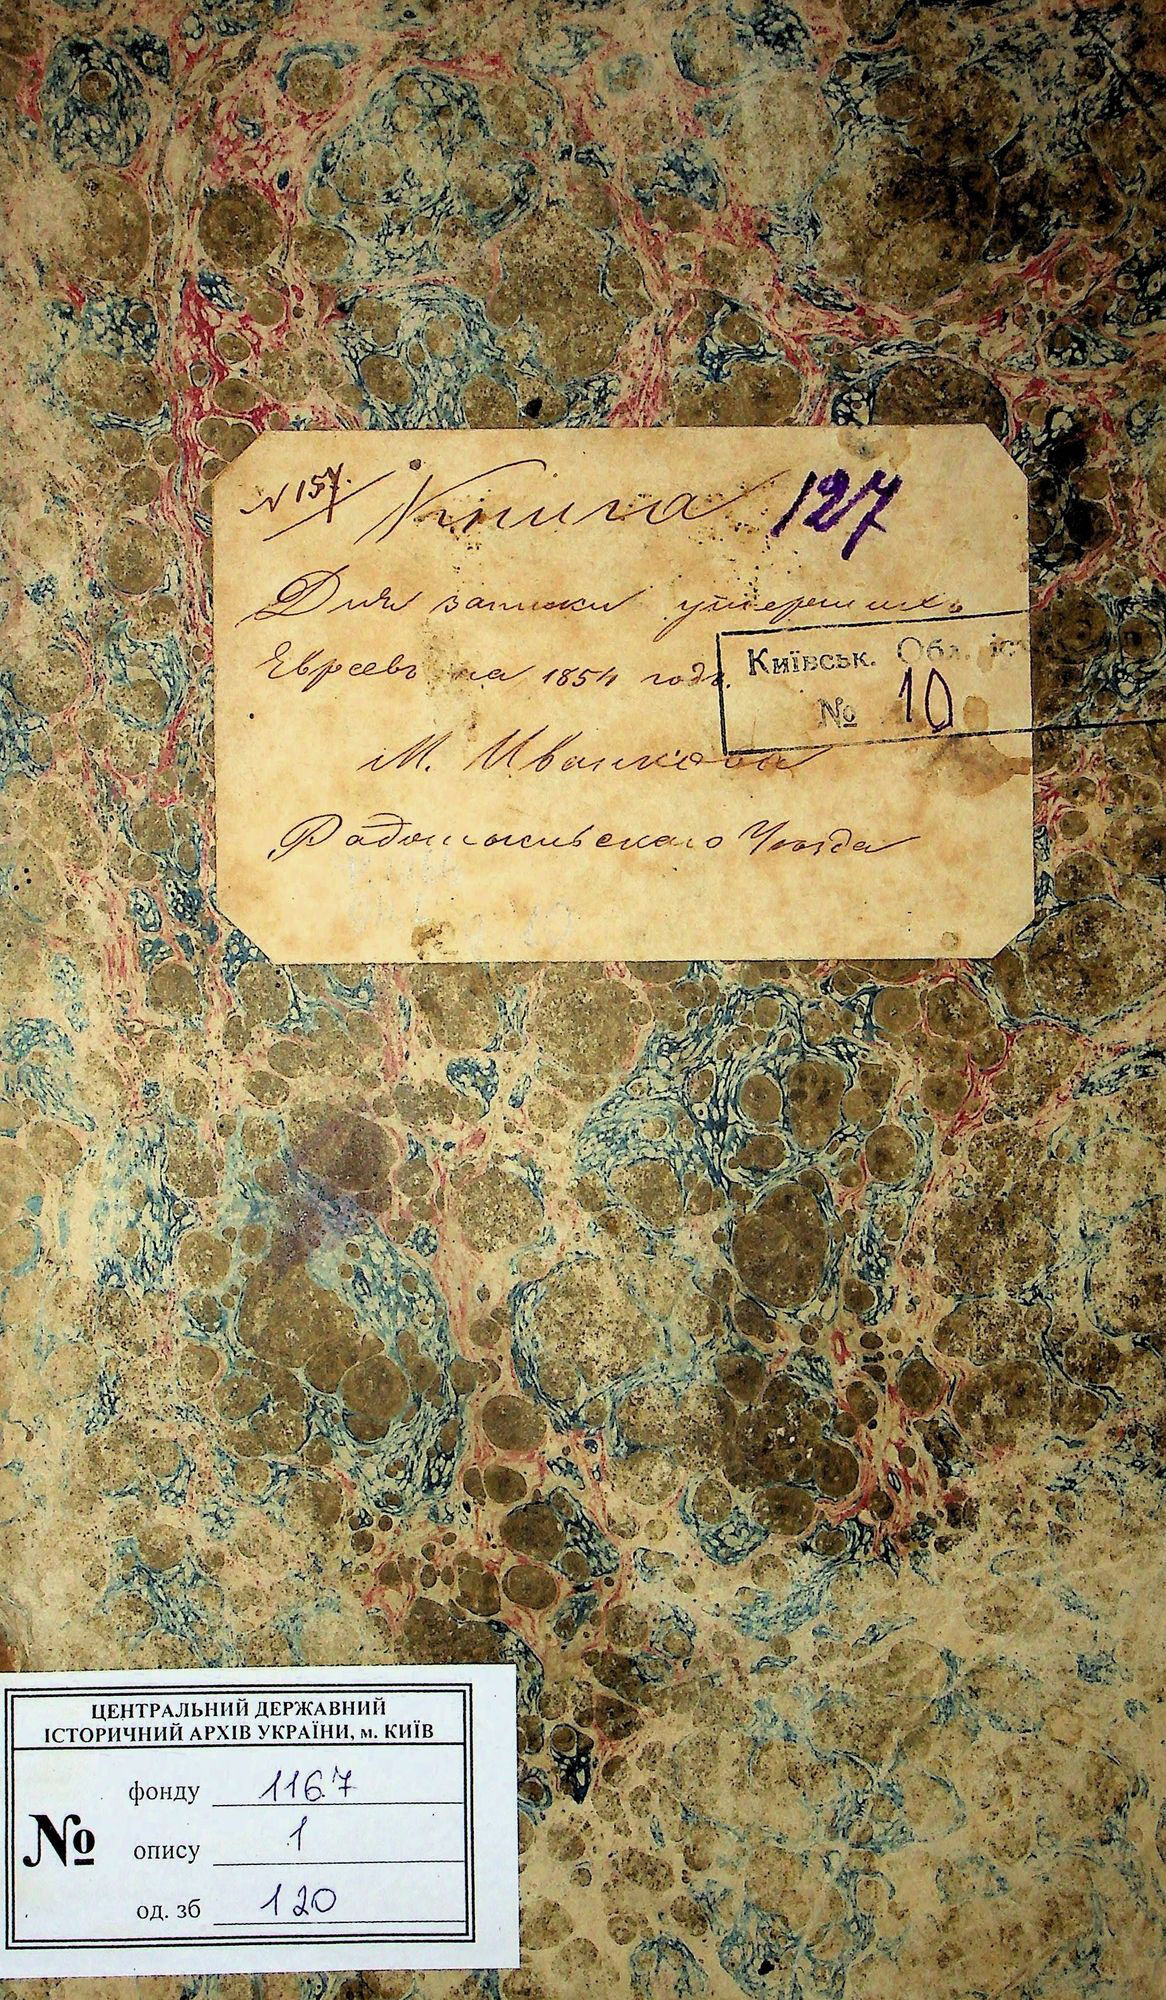 N 157. Книга 127
Для записки умершихъ
Евреевъ на 1854 годъ.
Київськ. Обл. іс
№ 10
М. Иванкова
Радомысльскаго Уѣзда
ЦЕНТРАЛЬНИЙ ДЕРЖАВНИЙ
ІСТОРИЧНИЙ АРХІВ УКРАЇНИ, м. КИЇВ
фонду 1167
№ опису 1
од. зб 120